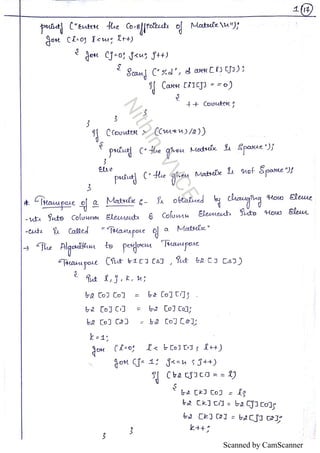 1
printf ("Enter the Co-efficients of Matrix \n");
for (i=0; i<m; i++)
{ for (j=0; j<n; j++)
{ Scanf ("%d", & arr[i][j]);
if (arr[i][j] == 0)
++ Counter;
}
}
if (Counter > ((m*n)/2))
{ printf ("the given Matrix is Sparse");
Else
printf ("the given Matrix is not Sparse");
}
* Transpose of a Matrix :- is obtained by changing row Eleme
-nts into Column Elements & Column Elements into row Elem
-ents is Called "Transpose of a Matrix"
→ The Algorithm to perform Transpose
Transpose (int b1[][3], int b2[][3])
{ int i, j, k, n;
b2 [0][0] = b1 [0][1];
b2 [0][1] = b1 [0][0];
b2 [0][2] = b1 [0][2];
k=1;
for (i=0; i< b1[0][1]; i++)
for (j=1; j<=n; j++)
if (b1[j][1] == i)
{
b2 [k][0] = i;
b2 [k][1] = b1[j][0];
b2 [k][2] = b1[j][2];
k++;
}
}
Nithin, VVCE
Scanned by CamScanner